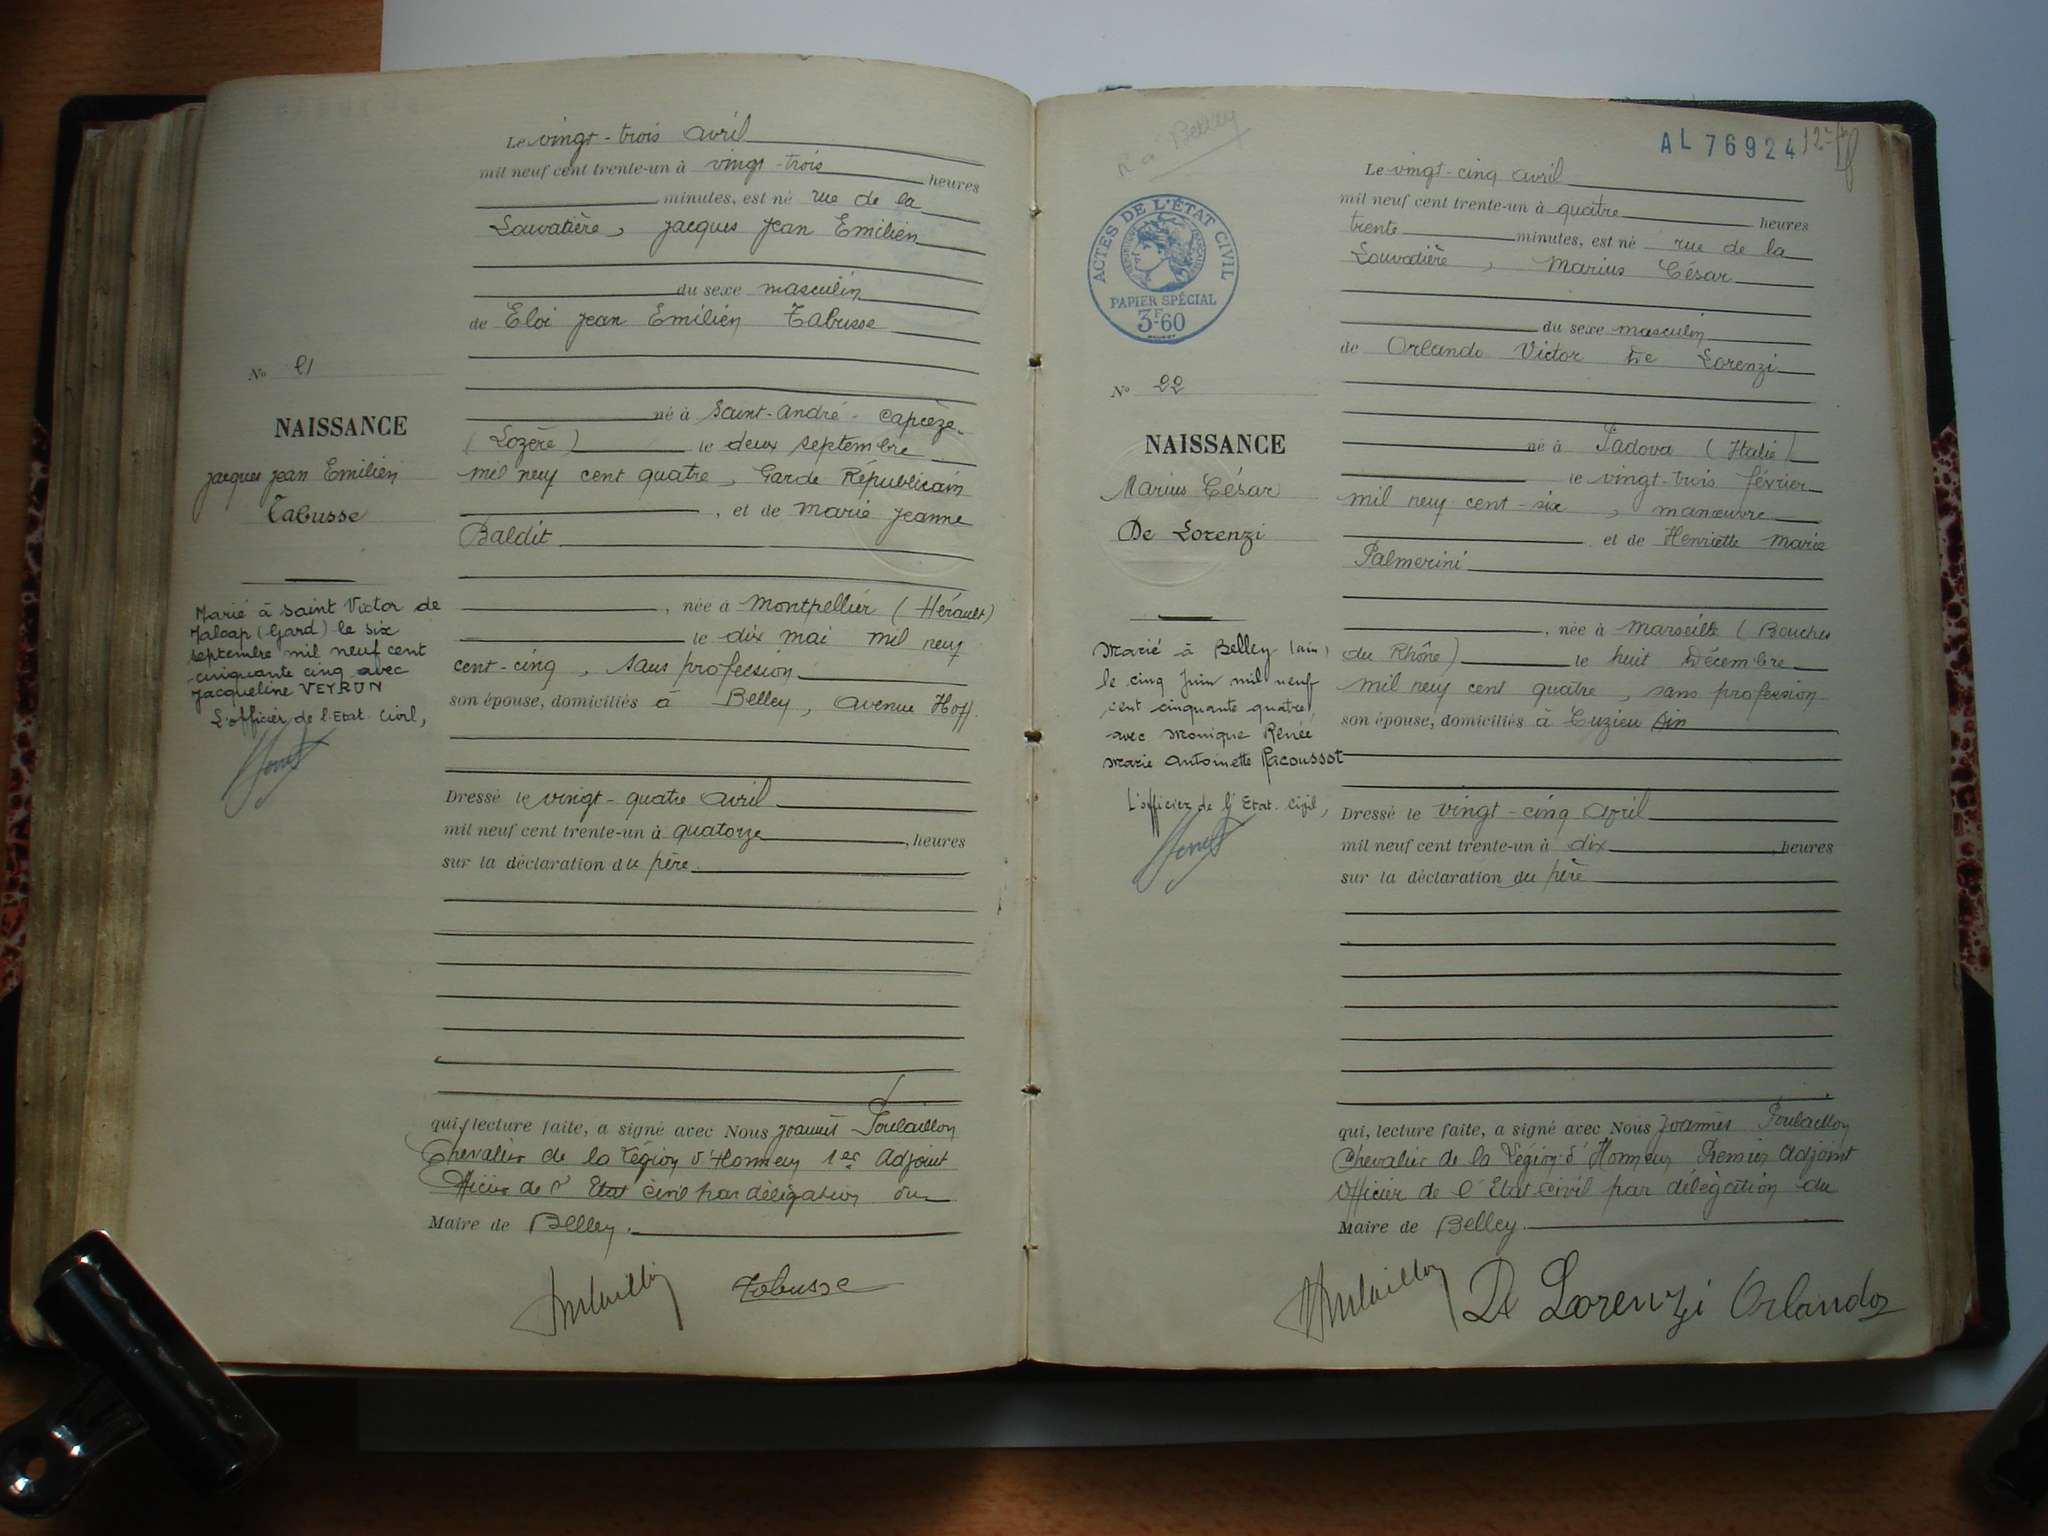 Le vingt-trois avril
mil neuf cent trente-un à vingt-trois heures
minutes, est né rue de la
Louvatière, Jacques Jean Emilien
du sexe masculin
de Eloi Jean Emilien Tabusse
né à Saint-André-Capcèze
(Lozère) le deux septembre
mil neuf cent quatre, Garde Républicain
, et de Marie Jeanne
Baldit
, née à Montpellier (Hérault)
le dix mai mil neuf
cent-cinq, sans profession
son épouse, domiciliés à Belley, avenue Hoff.
Dressé le vingt-quatre avril
mil neuf cent trente-un à quatorze, heures
sur la déclaration du père
qui, lecture faite, a signé avec Nous Joannès Poulaillon
Chevalier de la Légion d'Honneur 1er Adjoint
Officier de l'Etat civil par délégation du
Maire de Belley.
Tabusse
N° 21
NAISSANCE
Jacques Jean Emilien
Tabusse
Marié à Saint Victor de
Malcap (Gard) le six
septembre mil neuf cent
cinquante cinq avec
Jacqueline VEYRUN
L'officier de l'Etat Civil,
R à Belley
ACTES DE L'ÉTAT CIVIL
RÉPUBLIQUE FRANÇAISE
PAPIER SPÉCIAL
3F60
N° 22
NAISSANCE
Marius César
De Lorenzi
Marié à Belley (Ain)
le cinq Juin mil neuf
cent cinquante quatre
avec Monique Renée
Marie Antoinette Ricoussot
L'officier de l'Etat Civil,
AL 76924
Le vingt-cinq avril
mil neuf cent trente-un à quatre heures
trente minutes, est né rue de la
Louvatière, Marius César
du sexe masculin
de Orlando Victor De Lorenzi
né à Padova (Italie)
le vingt-trois février
mil neuf cent-six, manœuvre
et de Henriette Marie
Palmerini
, née à Marseille (Bouches
du Rhône) le huit Décembre
mil neuf cent quatre, sans profession
son épouse, domiciliés à Cuzieu Ain
Dressé le vingt-cinq avril
mil neuf cent trente-un à dix, heures
sur la déclaration du père
qui, lecture faite, a signé avec Nous Joannès Poulaillon
Chevalier de la Légion d'Honneur Premier Adjoint
Officier de l'Etat Civil par délégation du
Maire de Belley.
De Lorenzi Orlando